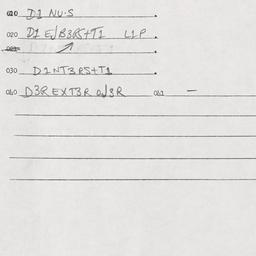 010 D1 NU·S .
020 D1 E/B3RS+T1 L1P .
030 D1NT3RS+T1 .
040 D3R EXT3R O/3R 041 —